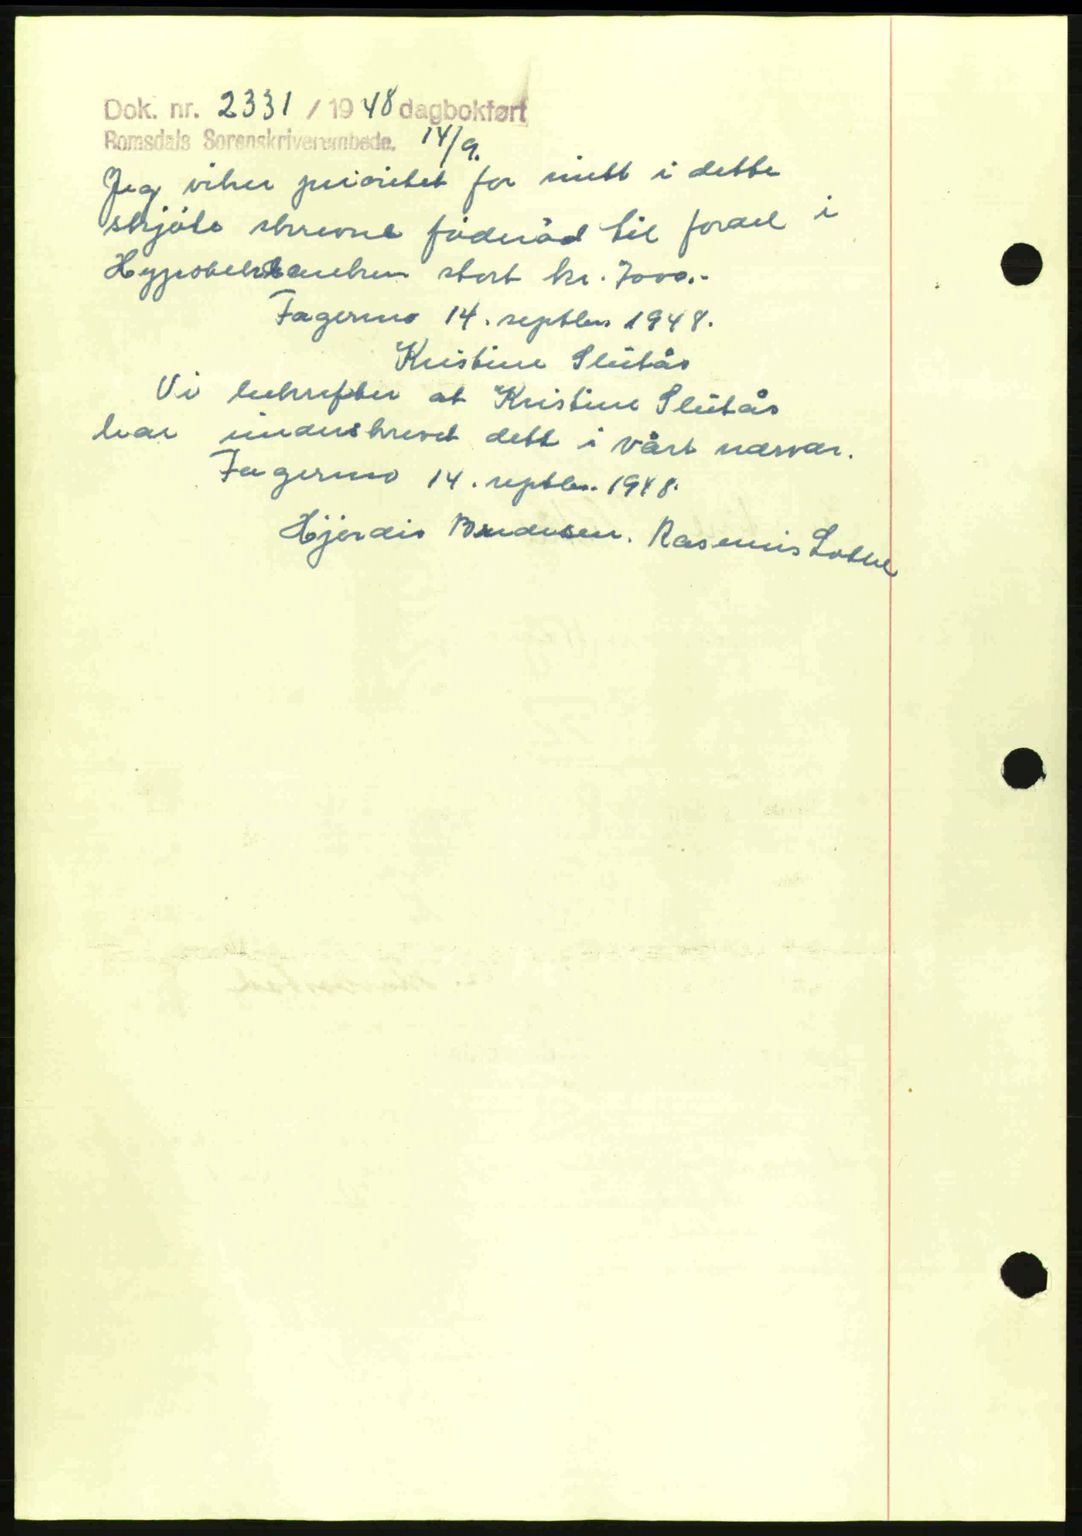 Dok. nr. 2331 / 1948 dagbokført
Romsdals Sorenskriverembede. 14/9.
Jeg viker prioritet for mitt i dette
skjøte skrevne føderåd til fordel i
Hypotekbanken stort kr. 7000.-
Fagermo 14. septbr. 1948.
Kristine Slutås
Vi bekrefter at Kristine Slutås
har underskrevet dett i vårt nærvær.
Fagermo 14. septbr. 1948.
Hjørdis Rasmus